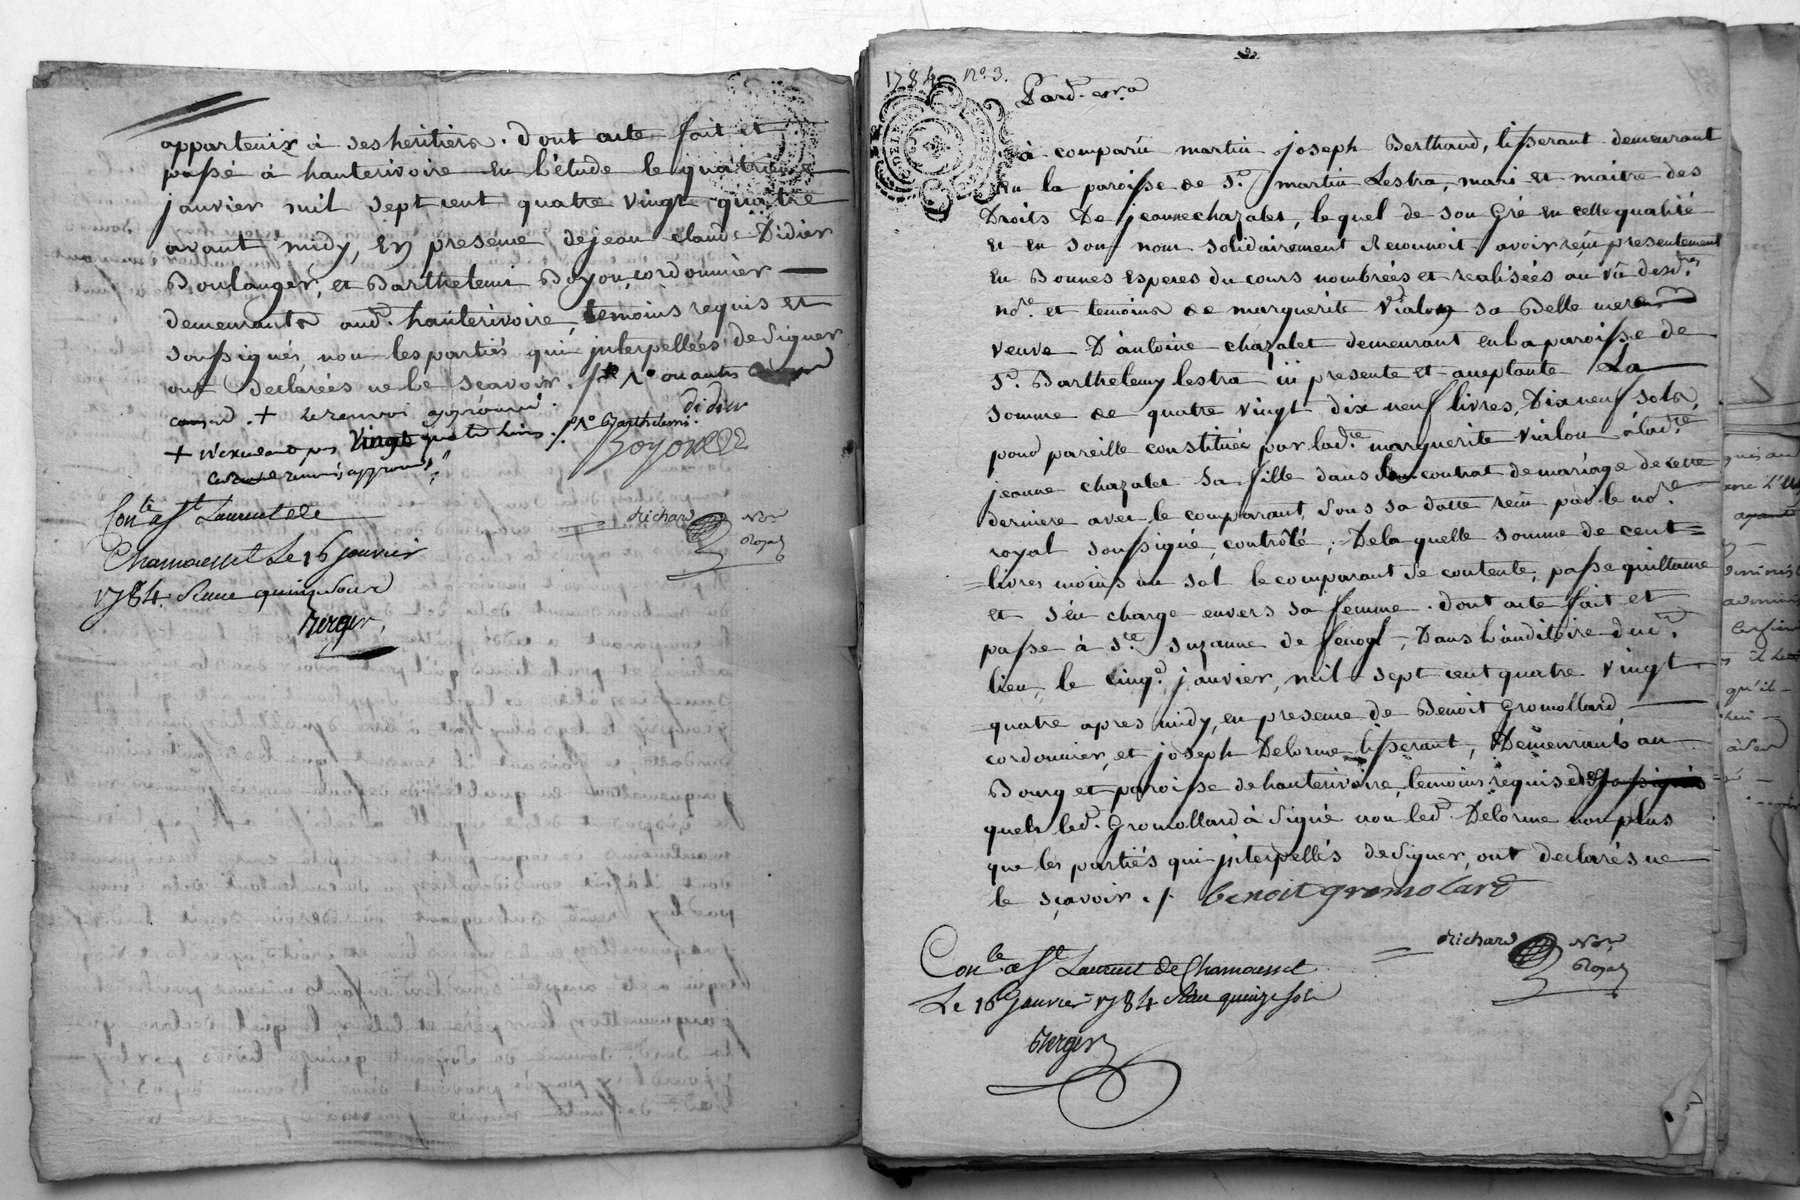 appartenir à ses heritiers. dont acte fait et
passé à hauterivoire en l'étude le quatrieme
janvier mil sept cent quatre vingt quatre
avant midy, en presence de jean claude Didier
Boulanger, et Barthelemi Boyon, cordonnier
demeurants aud.t hauterivoire, temoins requis et
soussignés, non les partiés qui interpellées de signer
ont declarées ne le sçavoir.
+ le renvoi approuvé.
didier
+ n'excedant pas vingt quatre livres
Barthelemi
Boyon
Con.lé a S.t Laurent de
Chamousset Le 16 janvier
1784. Reçu quinze sous
Berger
Richard No.re
Royal
1784 n.o 3.
Pard. 
à comparu martin joseph Berthaud, tisserant demeurant
en la paroisse de S.t martin Lestra, mari et maitre des
Droits De jeanne chazalet, lequel de son Gré en cette qualité
et en son nom solidairement Reconnoit avoir reçu presentement
en Bonnes Especes du cours nombrées et realisées au vû desd.ts
no.re et temoins de marguerite Vialon sa Belle mere
veuve D'antoine chazalet demeurant en la paroisse de
S.t Barthelemy lestra ici presente et acceptante La
somme de quatre vingt dix neuf livres, Dix neuf sols,
pour pareille constituée par lad.te marguerite Vialon à lad.te
jeanne chazalet sa fille dans contrat de mariage de cette
derniere avec le comparant, sous sa datte reçu par le no.re
royal soussigné, contrôlé; De la quelle somme de cent
livres moins un sol le comparant se contente, passe quittance
et s'en charge envers sa femme. dont acte fait et
passé à S.te suzanne de fenogl, Dans l'auditoire dud.t
lieu, le cinq.e janvier, mil sept cent quatre vingt
quatre apres midy, en presence de Benoit Gromollard
cordonnier, et joseph Delorme tisserant, Demeurants au
Bourg et paroisse de hauterivoire, temoins requis des
quels led.t Gromollard à signé non led.t Delorme non plus
que les partiés qui interpellés de signer, ont declarés ne
le sçavoir ./.
benoit gromolard
Richard No.re
Royal
Con.lé a S.t Laurent de Chamousset
Le 16 Janvier 1784 Reçu quinze sols
Berger